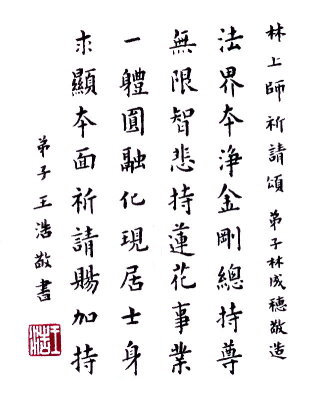 林上師祈請頌 弟子林成穗敬造
法界本淨金剛總持尊
無限智悲持蓮花事業
一體圓融化現居士身
求顯本面祈請賜加持
弟子王浩敬書
王浩